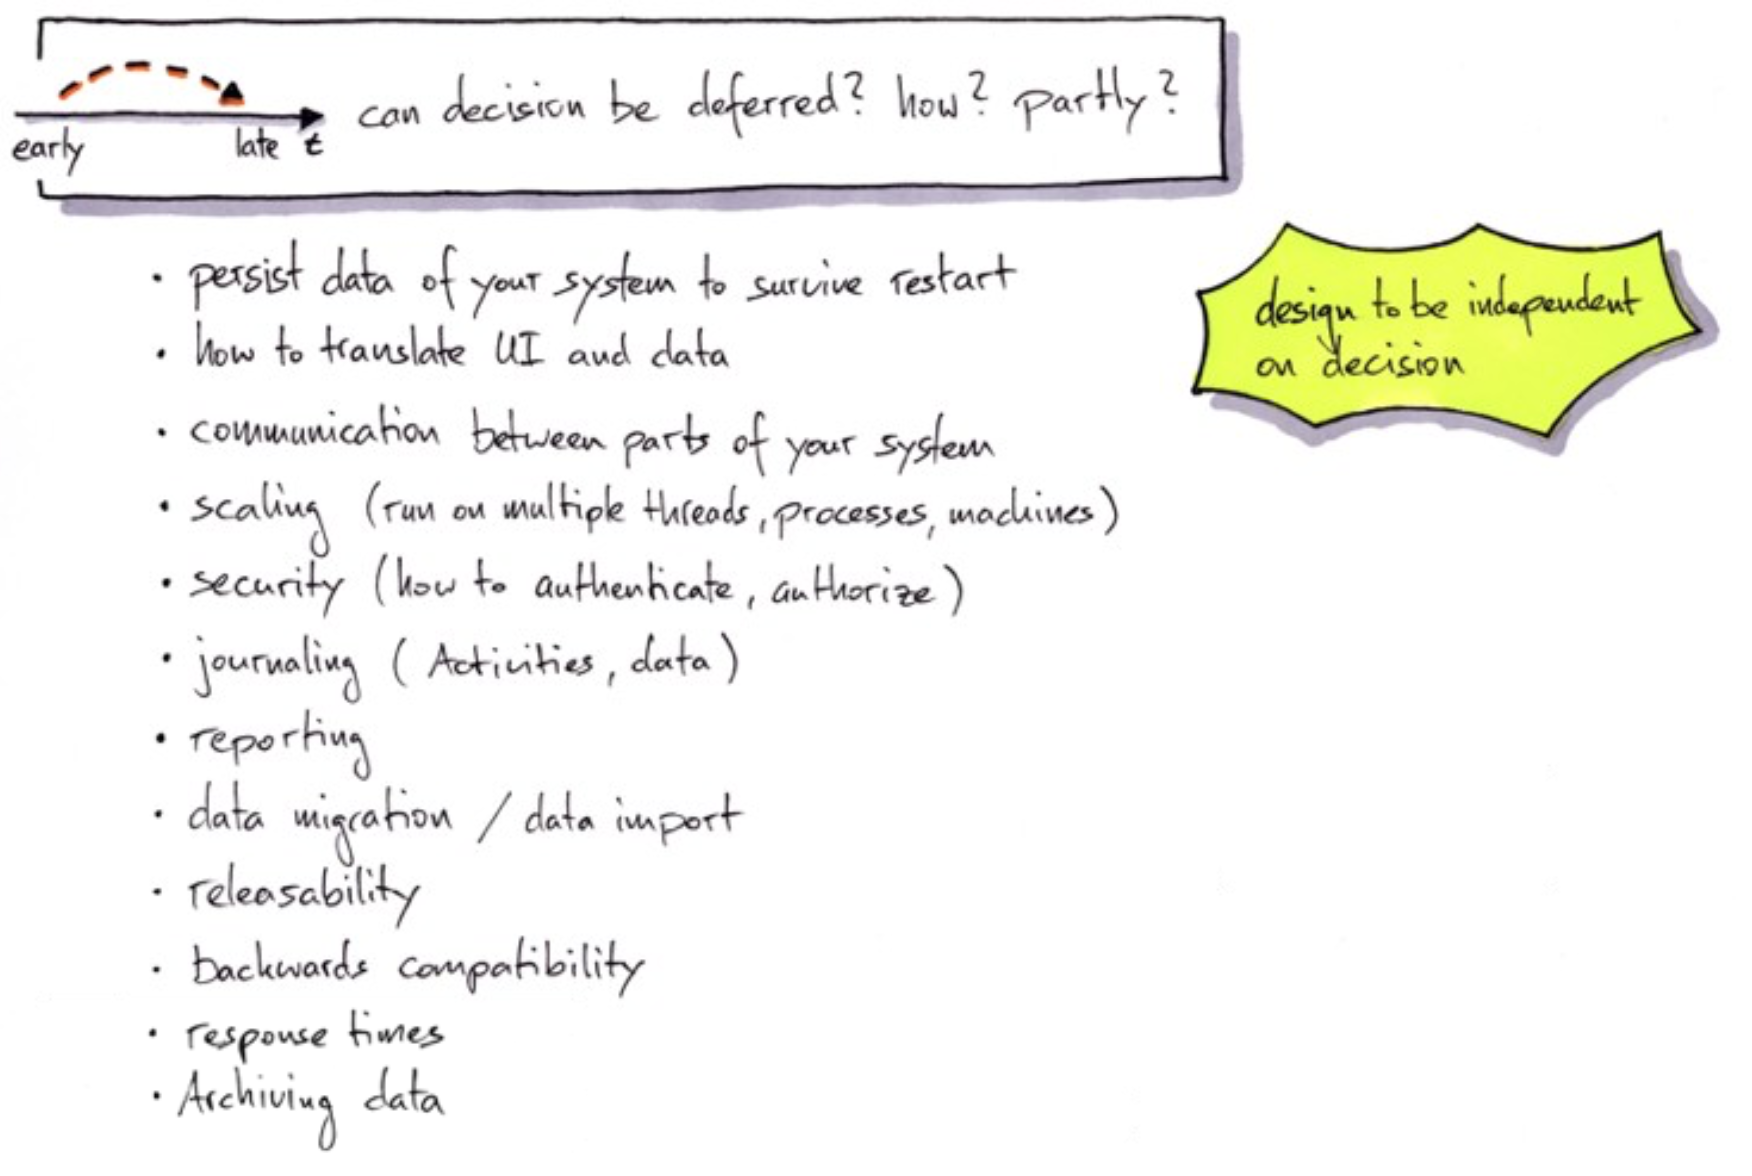 can decision be deferred? how? partly?
early late t
• persist data of your system to survive restart
• how to translate UI and data
• communication between parts of your system
• scaling (run on multiple threads, processes, machines)
• security (how to authenticate, authorize)
• journaling (Activities, data)
• reporting
• data migration / data import
• releasability
• backwards compatibility
• response times
• Archiving data
design to be independent
on decision